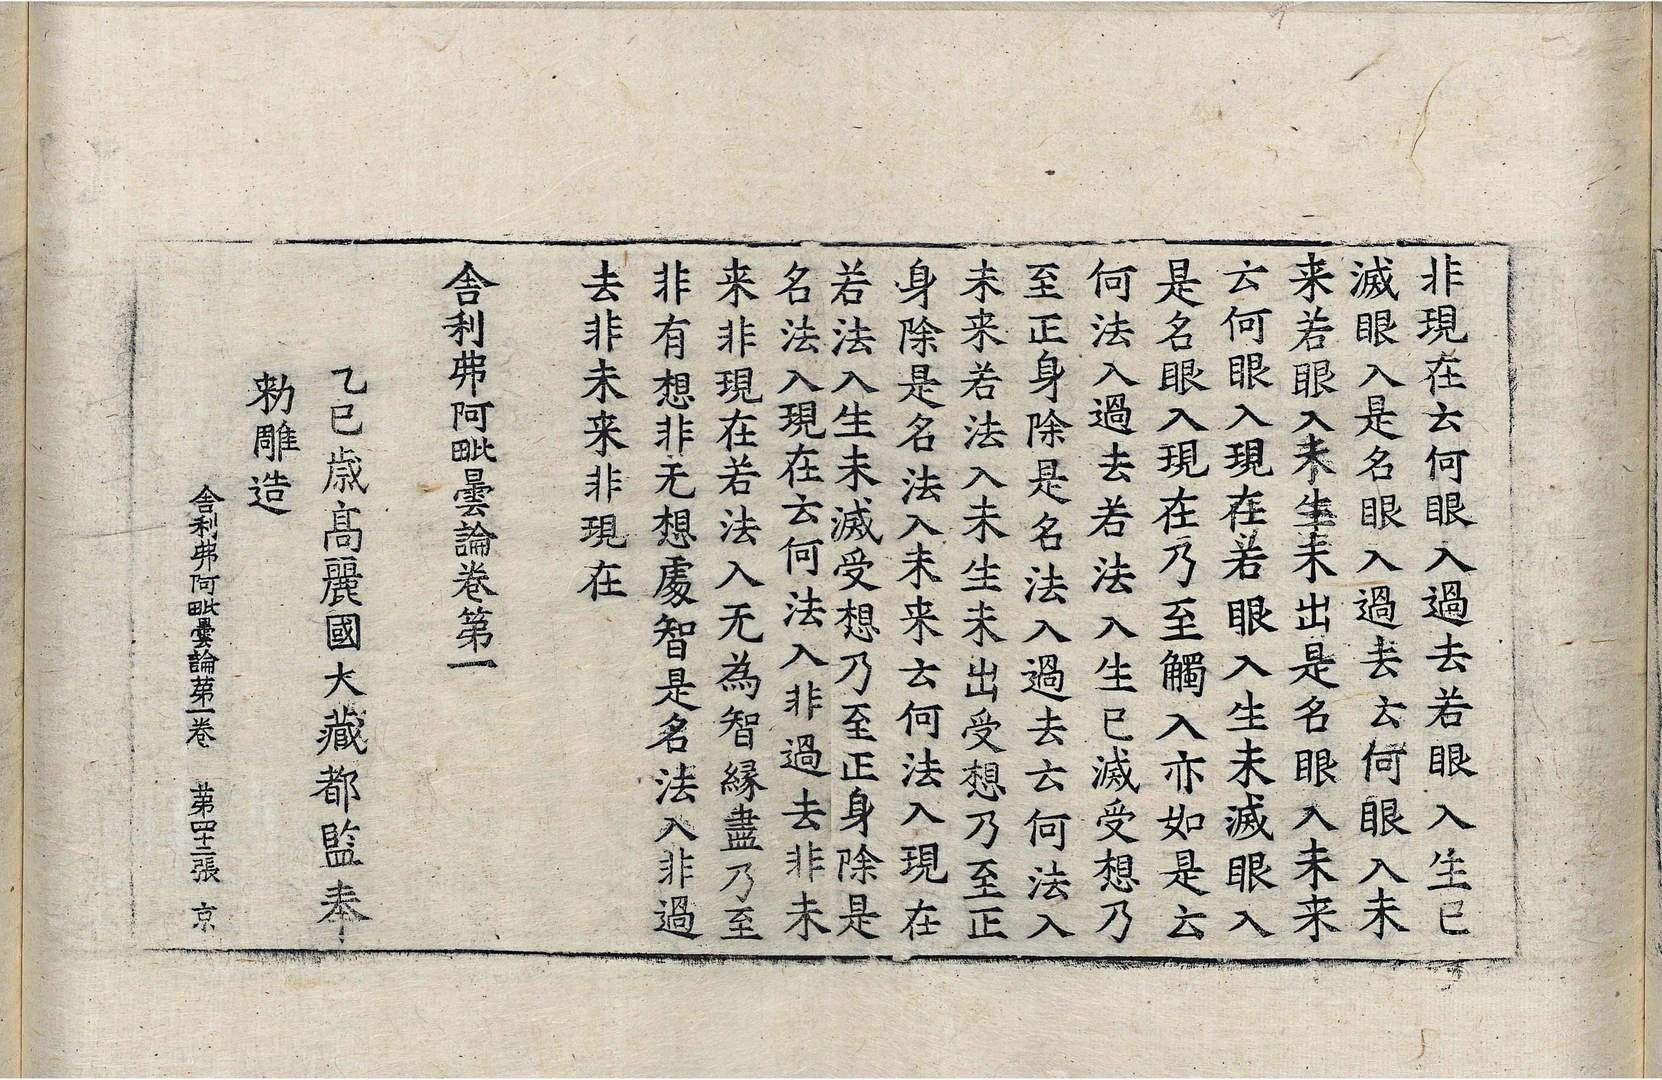 非現在云何眼入過去若眼入生已
滅眼入是名眼入過去云何眼入未
来若眼入未生未出是名眼入未来
云何眼入現在若眼入生未滅眼入
是名眼入現在乃至觸入亦如是云
何法入過去若法入生已滅受想乃
至正身除是名法入過去云何法入
未来若法入未生未出受想乃至正
身除是名法入未来云何法入現在
若法入生未滅受想乃至正身除是
名法入現在云何法入非過去非未
来非現在若法入无為智緣盡乃至
非有想非无想處智是名法入非過
去非未来非現在
舍利弗阿毗曇論卷第一
乙巳歲高麗國大藏都監奉
勅雕造
舍利弗阿毗曇論第一卷 第四十二張 京